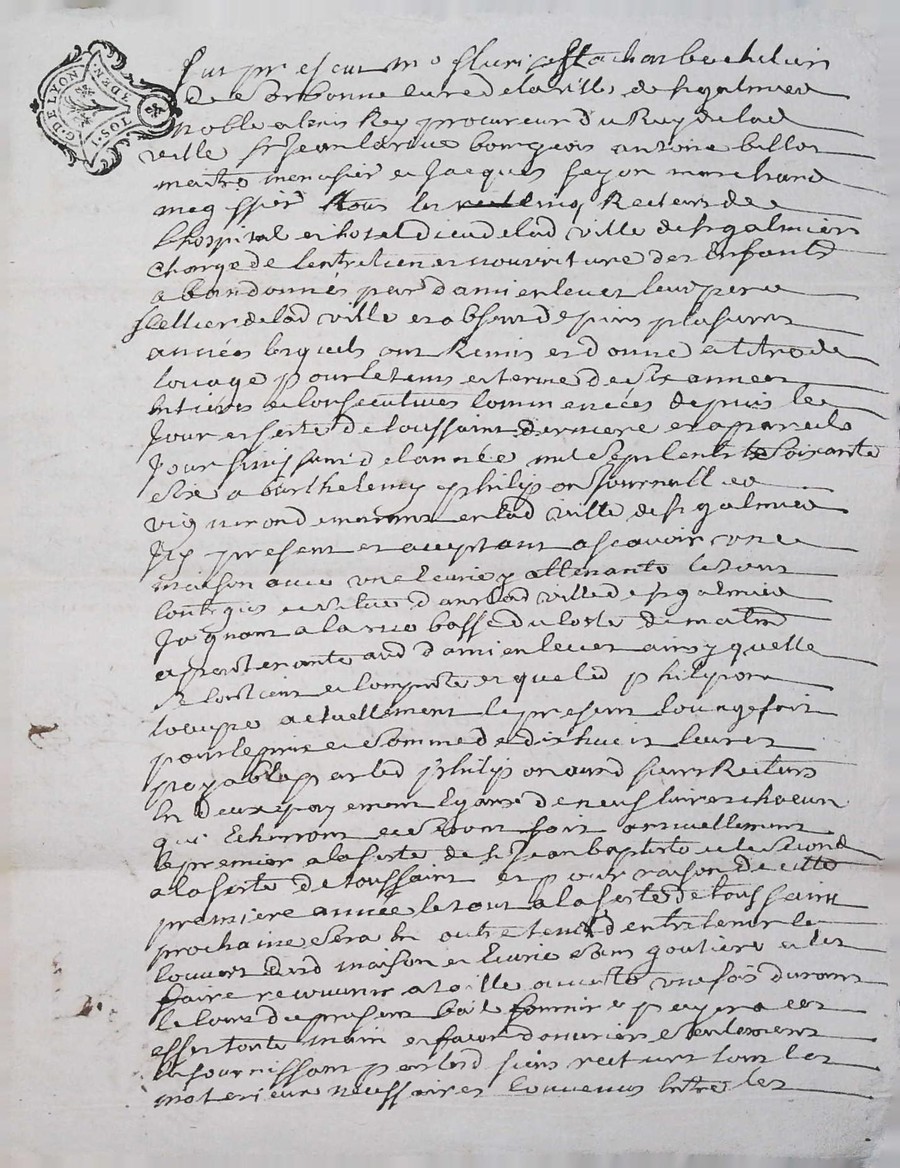 G. DE LYON
ADEN.
TOS. 1
Fut present mo
de Sorbonne cure de la ville de st galmier
noble alexis Rey procureur du Roy de lad
ville sr jean bourgeois antoine billot
maitre menusier et jacques feyon marchand
megissier tous les cinq Recteurs de
lhospital et hotel dieu de lad ville de st galmier
charge de lentretien et nourriture des Enfants
abandonnés par damien leur pere
sellier de lad ville et absent depuis plusieurs
années lesquels ont Remis et donné a titre de
louage pour le tems et terme de six années
entieres et consecutives commencées depuis le
jour et feste de toussaint derniere et a pareils
jours finissant de lannée mil sept cents soixante
six a barthelemy philipon journallier
vigneron demeurant en lad ville de st galmier
icy present et acceptant ascavoir une
maison avec une ecurie y attenante le tout
contigus et situé dans lad ville de st galmier
joignant a la rue basse du coste de matin
apartenante aud damien ainsy quelle
se contient et comporte et que led philipon
loccupe actuellement le present louage fait
pour le prix et somme de dix huit livres
payable par led philipon aud sieurs Recteurs
en deux payement egaux de neuf livres chacun
qui Echerront et se feront annuellement
le premier a la feste de st jean baptiste et le second
a la feste de toussaint et pour raison de cette
premiere année le tout a la feste de toussaint
prochaine sera en outre tenu dentretenir le
couvert dud maison et Ecurie sans goutiere et les
faire recouvrir a taille ouverte une fois durant
le cours du present bail fournir et payer a cet
effet toute main et facon douvriers seulement
en fournissant par lesd sieurs recteurs tous les
materieux necessaires convenus entre les